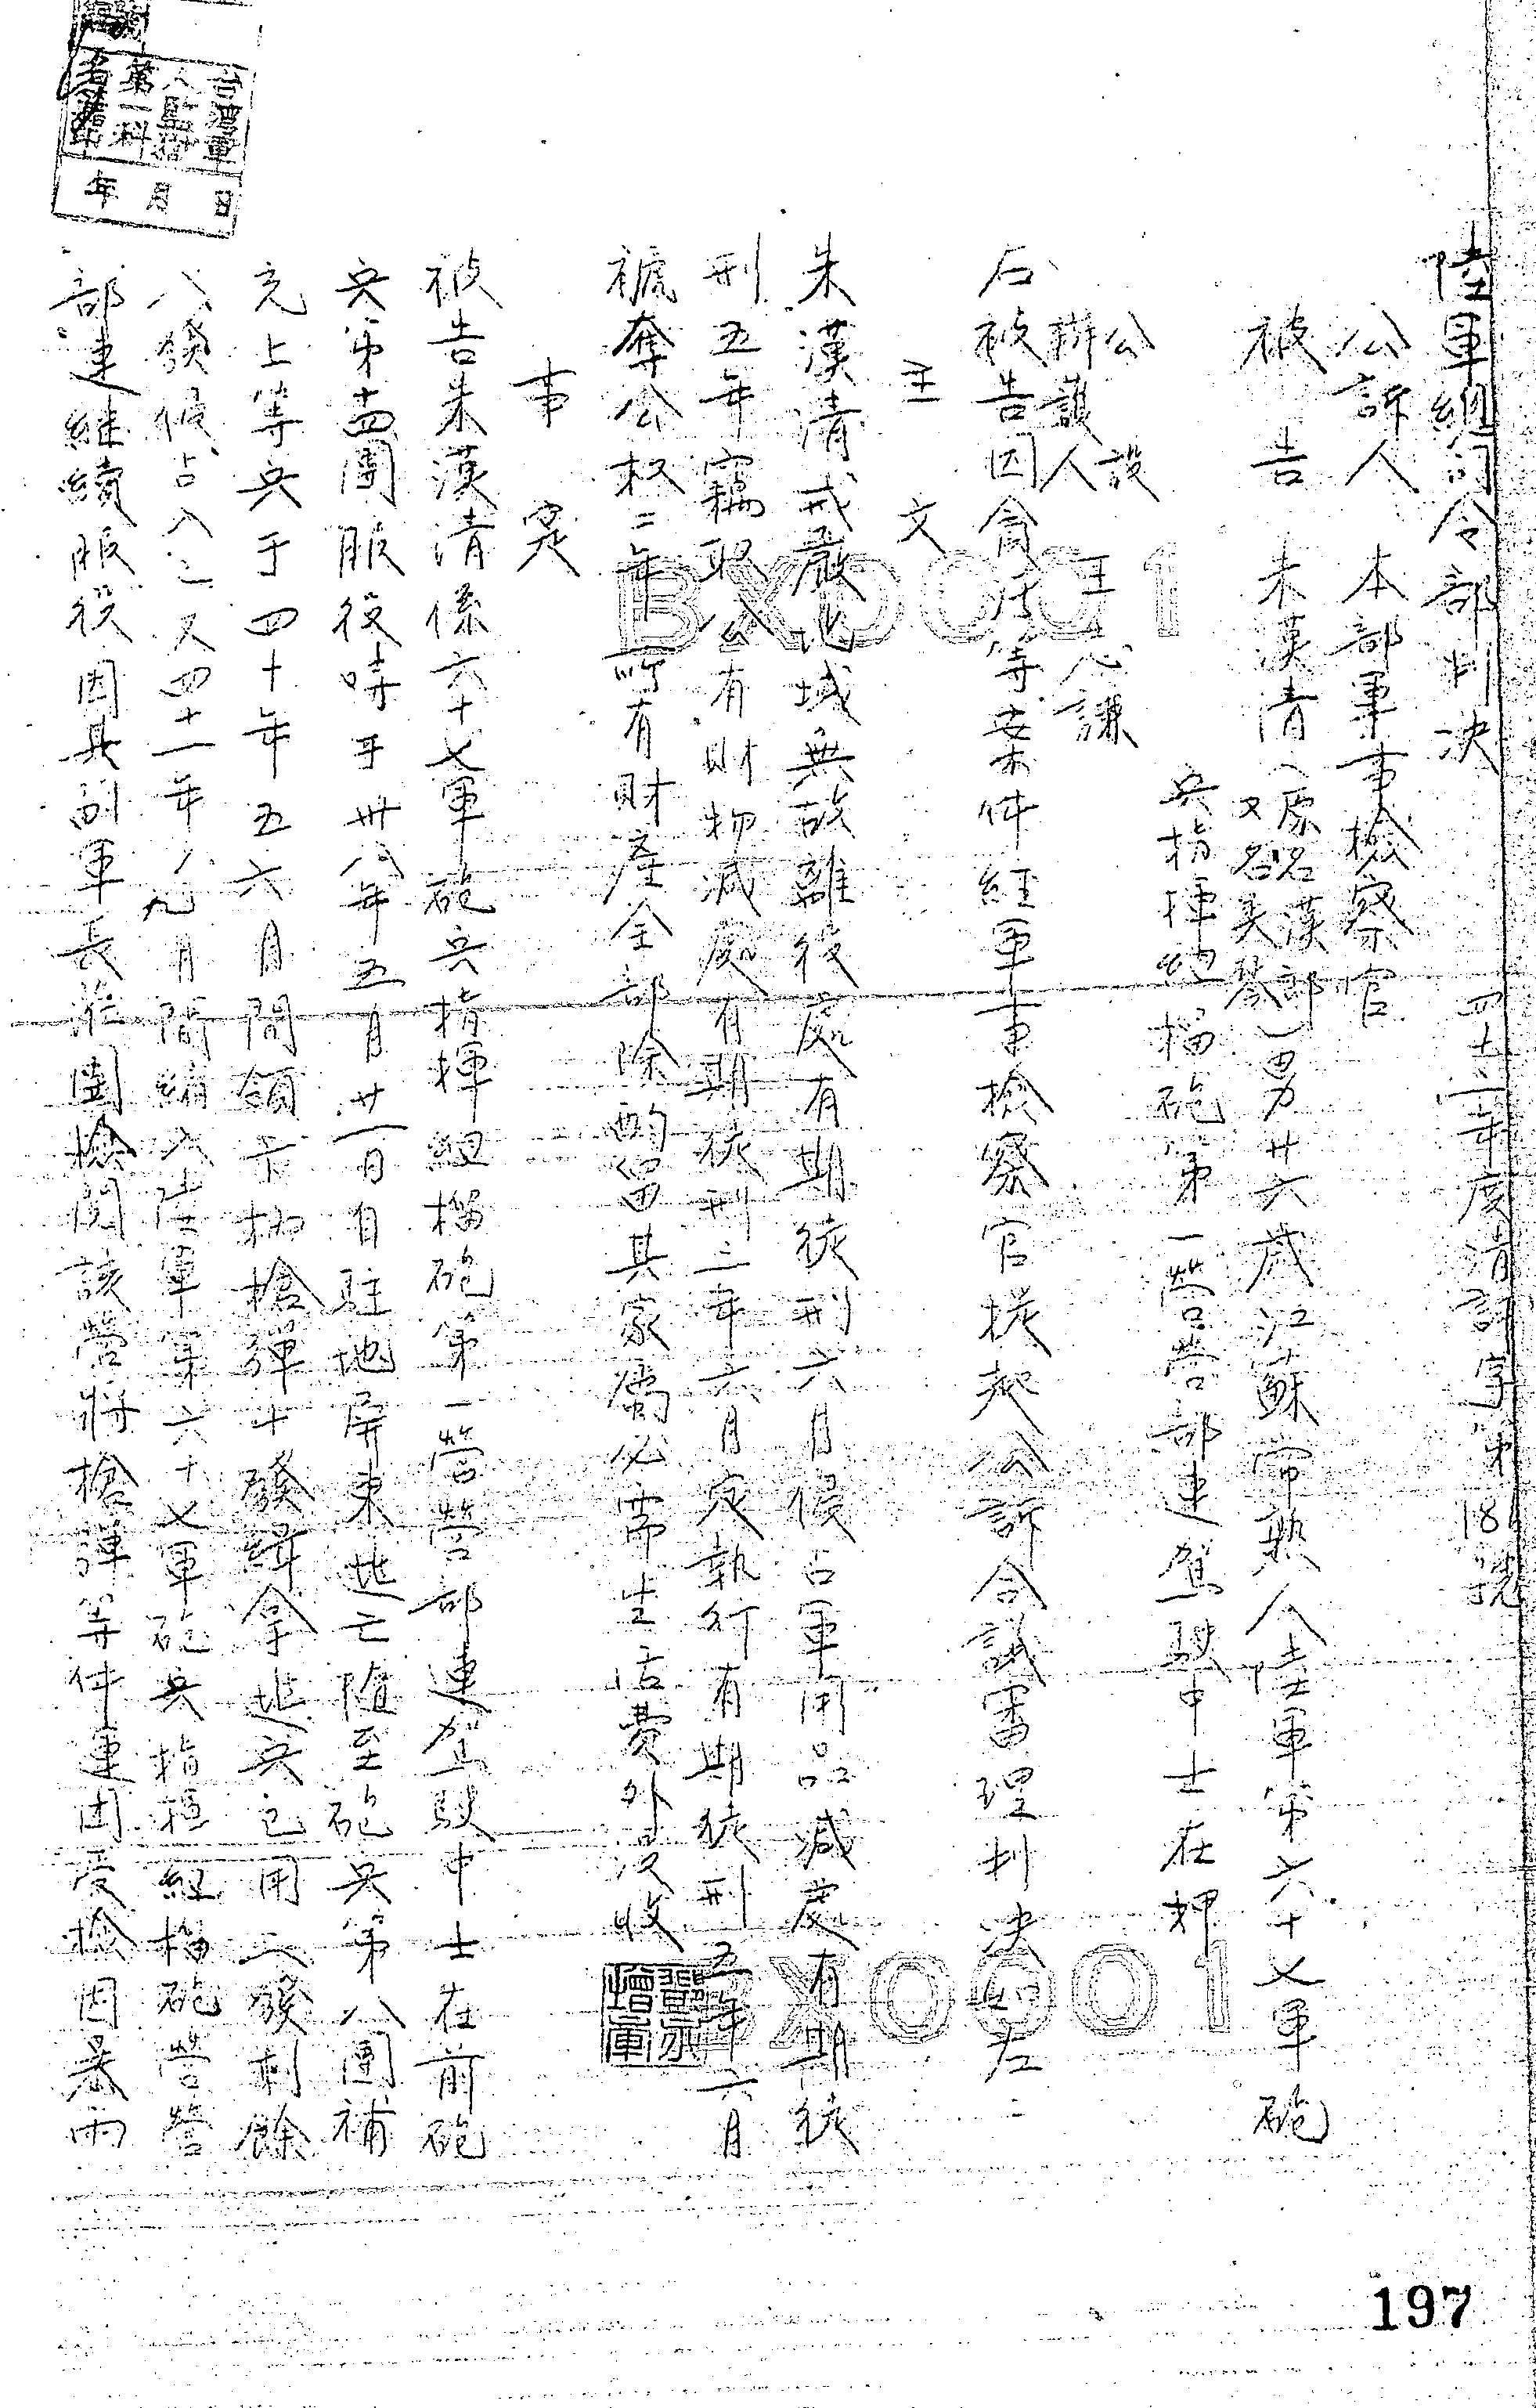 陸軍總司令部判決　四十二年度清訴字第186號
公訴人　本部軍事檢察官
被告　朱漢清（原名漢郎又名美琴）男廿六歲江蘇常熟人陸軍第六十七軍砲
兵指揮組榴砲第一營營部連駕駛中士在押
公設辯護人　王心謙
右被告因貪污等案件經軍事檢察官提起公訴合議審理判決如左：
主文
朱漢清戒嚴地域無故離役處有期徒刑六月侵占軍用品減處有期徒
刑五年竊取公有財物減處有期徒刑三年六月定執行有期徒刑五年六月
褫奪公权二年所有財產全部除酌留其家屬必需生活費外沒收
事實
被告朱漢清係六十七軍砲兵指揮組榴砲第一營營部連駕駛中士在前砲
兵第十四團服役時于卅八年五月廿一日自駐地屏東逃亡随至砲兵第八團補
充上等兵于四十年五六月間領卡柄槍彈十發緝拿逃兵已用二發剩餘
八發侵占入己又四十一年八九月間編入陸軍第六十七軍砲兵指揮組榴砲營營
部連繼續服役因其副軍長蒞團檢閱該營將槍彈等件運団受檢因暴雨
台灣軍人監獄
第一科
年月日
BX0001
BX0001
197